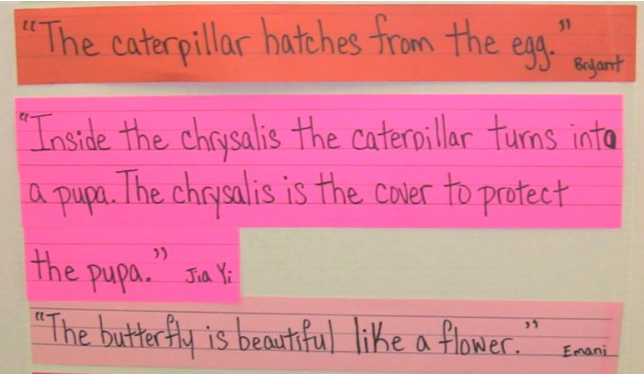 "The caterpillar hatches from the egg." Bryant
"Inside the chrysalis the caterpillar turns into
a pupa. The chrysalis is the cover to protect
the pupa." Jia Yi
"The butterfly is beautiful like a flower." Emani